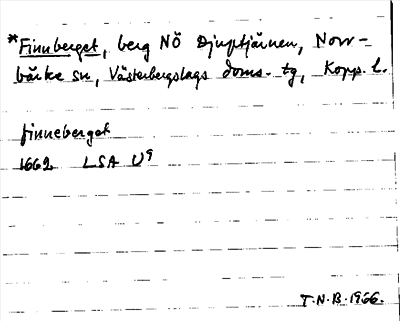 *Finnberget, berg NÖ Djuptjärnen, Norr-
bärke sn, Västerbergslags doms. tg, Kopp. l.
finneberget
1662 LSA U9
T.N.B. 1966.